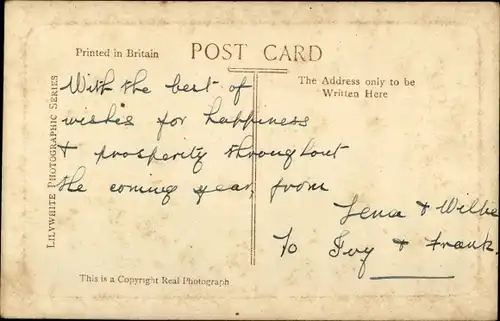 Printed in Britain
POST CARD
The Address only to be
Written Here
LILYWHITE PHOTOGRAPHIC SERIES
With the best of
wishes for happiness
+ prosperity throughout
the coming year, from
Lena + Willie
To Ivy + Frank.
This is a Copyright Real Photograph